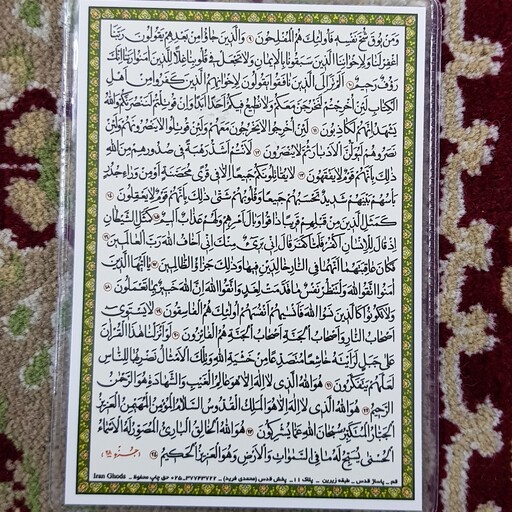 وَمَن يُوقَ شُحَّ نَفْسِهِ فَأُولٰئِكَ هُمُ الْمُفْلِحُونَ ۹ وَالَّذِينَ جَاؤُا مِن بَعْدِهِمْ يَقُولُونَ رَبَّنَا
اغْفِرْ لَنَا وَلِإِخْوَانِنَا الَّذِينَ سَبَقُونَا بِالْإِيمَانِ وَلَا تَجْعَلْ فِي قُلُوبِنَا غِلًّا لِلَّذِينَ آمَنُوا رَبَّنَا إِنَّكَ
رَؤُفٌ رَحِيمٌ ۱۰ أَلَمْ تَرَ إِلَى الَّذِينَ نَافَقُوا يَقُولُونَ لِإِخْوَانِهِمُ الَّذِينَ كَفَرُوا مِنْ أَهْلِ
الْكِتَابِ لَئِنْ أُخْرِجْتُمْ لَنَخْرُجَنَّ مَعَكُمْ وَلَا نُطِيعُ فِيكُمْ أَحَدًا أَبَدًا وَإِن قُوتِلْتُمْ لَنَنصُرَنَّكُمْ وَاللَّهُ
يَشْهَدُ إِنَّهُمْ لَكَاذِبُونَ ۱۱ لَئِنْ أُخْرِجُوا لَا يَخْرُجُونَ مَعَهُمْ وَلَئِن قُوتِلُوا لَا يَنصُرُونَهُمْ وَلَئِن
نَصَرُوهُمْ لَيُوَلُّنَّ الْأَدْبَارَ ثُمَّ لَا يُنصَرُونَ ۱۲ لَأَنتُمْ أَشَدُّ رَهْبَةً فِي صُدُورِهِم مِنَ اللَّهِ
ذٰلِكَ بِأَنَّهُمْ قَوْمٌ لَا يَفْقَهُونَ ۱۳ لَا يُقَاتِلُونَكُمْ جَمِيعًا إِلَّا فِي قُرًى مُحَصَّنَةٍ أَوْ مِن وَرَاءِ جُدُرٍ
بَأْسُهُم بَيْنَهُمْ شَدِيدٌ تَحْسَبُهُمْ جَمِيعًا وَقُلُوبُهُمْ شَتَّى ذٰلِكَ بِأَنَّهُمْ قَوْمٌ لَا يَعْقِلُونَ ۱۴
كَمَثَلِ الَّذِينَ مِن قَبْلِهِمْ قَرِيبًا ذَاقُوا وَبَالَ أَمْرِهِمْ وَلَهُمْ عَذَابٌ أَلِيمٌ ۱۵ كَمَثَلِ الشَّيْطَانِ
إِذْ قَالَ لِلْإِنسَانِ اكْفُرْ فَلَمَّا كَفَرَ قَالَ إِنِّي بَرِيءٌ مِنكَ إِنِّي أَخَافُ اللَّهَ رَبَّ الْعَالَمِينَ ۱۶
فَكَانَ عَاقِبَتَهُمَا أَنَّهُمَا فِي النَّارِ خَالِدَيْنِ فِيهَا وَذٰلِكَ جَزَاءُ الظَّالِمِينَ ۱۷ يَا أَيُّهَا الَّذِينَ
آمَنُوا اتَّقُوا اللَّهَ وَلْتَنظُرْ نَفْسٌ مَا قَدَّمَتْ لِغَدٍ وَاتَّقُوا اللَّهَ إِنَّ اللَّهَ خَبِيرٌ بِمَا تَعْمَلُونَ ۱۸
وَلَا تَكُونُوا كَالَّذِينَ نَسُوا اللَّهَ فَأَنسَاهُمْ أَنفُسَهُمْ أُولٰئِكَ هُمُ الْفَاسِقُونَ ۱۹ لَا يَسْتَوِي
أَصْحَابُ النَّارِ وَأَصْحَابُ الْجَنَّةِ أَصْحَابُ الْجَنَّةِ هُمُ الْفَائِزُونَ ۲۰ لَوْ أَنزَلْنَا هٰذَا الْقُرْآنَ
عَلَى جَبَلٍ لَرَأَيْتَهُ خَاشِعًا مُتَصَدِّعًا مِنْ خَشْيَةِ اللَّهِ وَتِلْكَ الْأَمْثَالُ نَضْرِبُهَا لِلنَّاسِ
لَعَلَّهُمْ يَتَفَكَّرُونَ ۲۱ هُوَ اللَّهُ الَّذِي لَا إِلٰهَ إِلَّا هُوَ عَالِمُ الْغَيْبِ وَالشَّهَادَةِ هُوَ الرَّحْمٰنُ
الرَّحِيمُ ۲۲ هُوَ اللَّهُ الَّذِي لَا إِلٰهَ إِلَّا هُوَ الْمَلِكُ الْقُدُّوسُ السَّلَامُ الْمُؤْمِنُ الْمُهَيْمِنُ الْعَزِيزُ
الْجَبَّارُ الْمُتَكَبِّرُ سُبْحَانَ اللَّهِ عَمَّا يُشْرِكُونَ ۲۳ هُوَ اللَّهُ الْخَالِقُ الْبَارِئُ الْمُصَوِّرُ لَهُ الْأَسْمَاءُ
الْحُسْنَى يُسَبِّحُ لَهُ مَا فِي السَّمٰوَاتِ وَالْأَرْضِ وَهُوَ الْعَزِيزُ الْحَكِيمُ ۲۴ جزء ۲۸
قم _ پاساژ قدس _ طبقه زیرین _ پلاک ۱۱_ پخش قدس (محمدی فرید) _ ۳۷۷۴۳۷۲۲-۰۲۵ حق چاپ محفوظ _ Iran Ghods